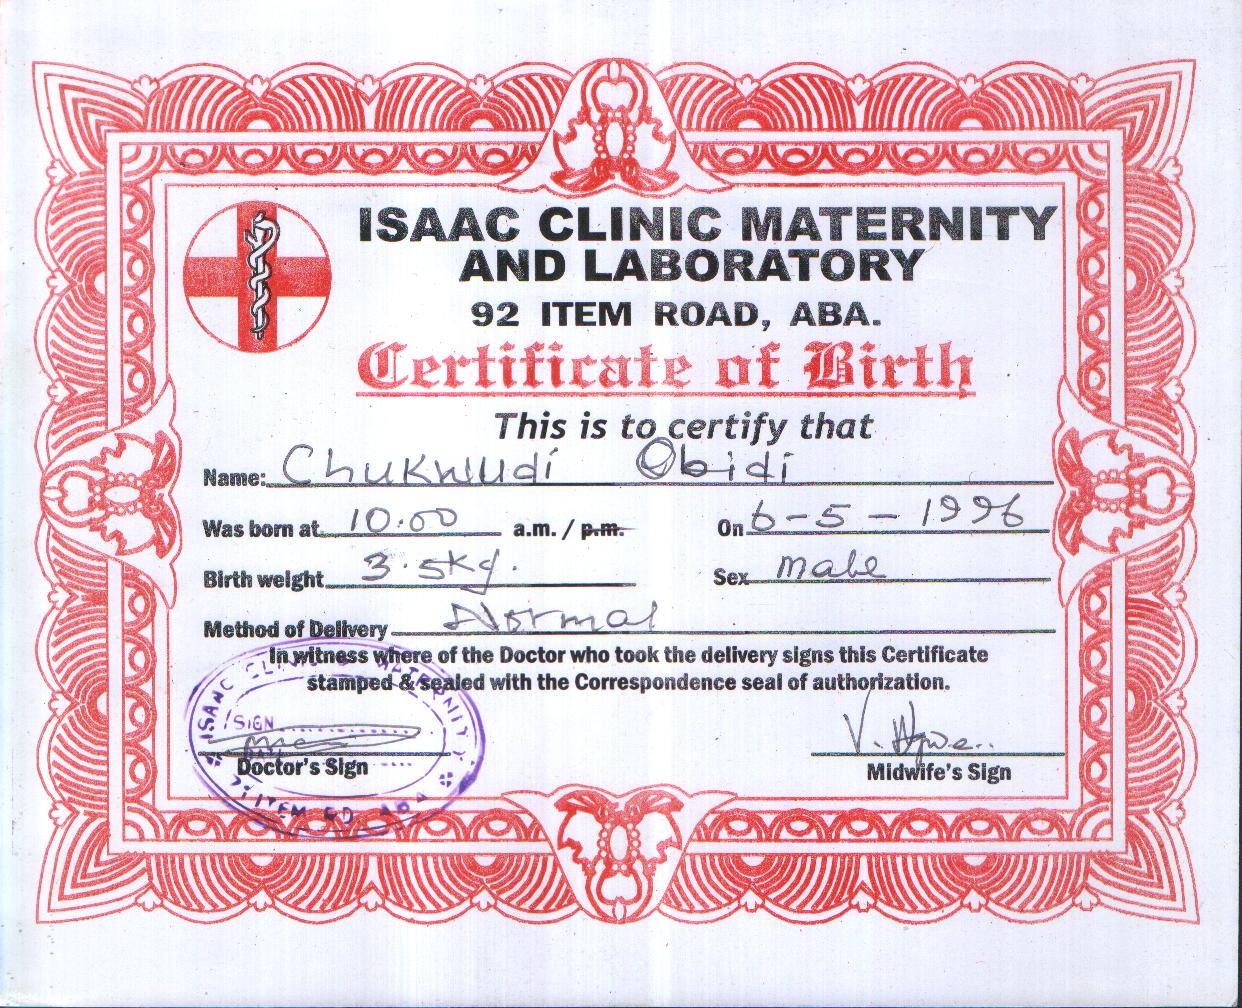 ISAAC CLINIC MATERNITY
AND LABORATORY
92 ITEM ROAD, ABA.
Certificate of Birth
This is to certify that
Name: Chukwudi Obidi
Was born at 10.00 a.m. / p.m. On 6-5-1996
Birth weight 3.5kg. Sex male
Method of Delivery Normal
In witness where of the Doctor who took the delivery signs this Certificate
stamped & sealed with the Correspondence seal of authorization.
ISAAC CLINIC & MATERNITY
SIGN
ITEM RD. ABA
Doctor's Sign Midwife's Sign